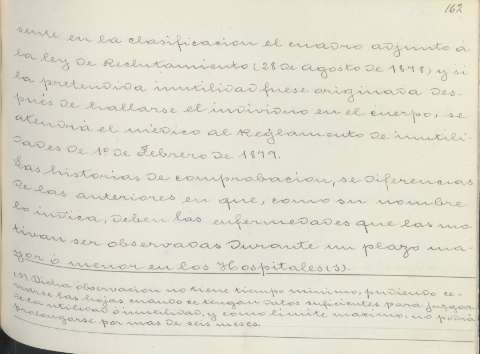 162
sente en la clasificacion el cuadro adjunto á
la ley de Reclutamiento (28 de Agosto de 1878) y si
la pretendida inutilidad fuese originada des-
pués de hallarse el individuo en el cuerpo, se
atendrá el médico al Reglamento de inutili-
dades de 1º de Febrero de 1879.
Las historias de comprobacion, se diferencias
de las anteriores en que, como su nombre
lo indica, deben las enfermedades que las mo-
tivan ser observadas durante un plazo ma-
yor ó menor en los Hospitales (3).
(3) Dicha observacion no tiene tiempo mínimo, pudiendo ce-
rrarse las hojas cuando se tengan datos suficientes para juzgar
de la utilidad ó inutilidad, y como límite maximo: no podrá
prolongarse por mas de seis meses.